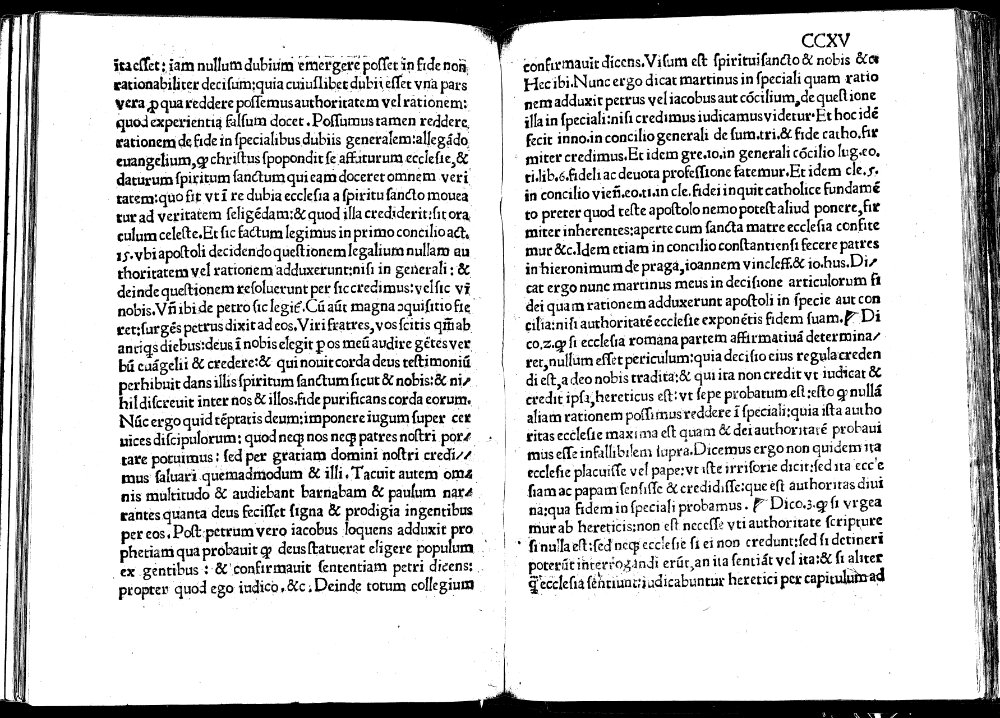 ita eſſet: iam nullum dubium emergere poſſet in fide non
rationabiliter deciſum: quia cuiuſlibet dubii eſſet vna pars
vera ꝓ qua reddere poſſemus authoritatem vel rationem:
quod experientia falſum docet. Poſſumus tamen reddere
rationem de fide in ſpecialibus dubiis generalem: allegādo
euangelium, ꝙ chriſtus ſpopondit ſe aſſiturum eccleſie, &
daturum ſpiritum ſanctum qui eam doceret omnem veri
tatem: quo fit vt ī re dubia eccleſia a ſpiritu ſancto mouea
tur ad veritatem ſeligēdam: & quod illa crediderit: ſit ora
culum celeſte. Et ſic factum legimus in primo concilio act.
15. vbi apoſtoli decidendo queſtionem legalium nullam au
thoritatem vel rationem adduxerunt: niſi in generali: &
deinde queſtionem reſoluerunt per ſic credimus: vel ſic vī
nobis. Vn̄ ibi de petro ſic legiť. Cū aūt magna ↄquiſitio fie
ret: ſurgēs petrus dixit ad eos. Viri fratres, vos ſcitis qm̄ ab
antiqs diebus: deus ī nobis elegit p os meū audire gētes ver
bū euāgelii & credere: & qui nouit corda deus teſtimoniū
perhibuit dans illis ſpiritum ſanctum ſicut & nobis: & ni⸗
hil diſcreuit inter nos & illos. fide purificans corda eorum.
Nūc ergo quid tēptatis deum: imponere iugum ſuper cer
uices diſcipulorum: quod neqꝫ nos neqꝫ patres noſtri por⸗
tare potuimus: ſed per gratiam domini noſtri credi⸗
mus ſaluari quemadmodum & illi. Tacuit autem om⸗
nis multitudo & audiebant barnabam & paulum nar⸗
rantes quanta deus feciſſet ſigna & prodigia in gentibus
per eos. Poſt petrum vero iacobus loquens adduxit pro
phetiam qua probauit ꝙ deus ſtatuerat eligere populum
ex gentibus: & confirmauit ſententiam petri dicens:
propter quod ego iudico. &c. Deinde totum collegium
CCXV
confirmauit dicens. Viſum eſt ſpiritui ſancto & nobis &c
Hec ibi. Nunc ergo dicat martinus in ſpeciali quam ratio
nem adduxit petrus vel iacobus aut cōcilium, de queſtione
illa in ſpeciali: niſi credimus iudicamus videtur. Et hoc idē
fecit inno. in concilio generali de ſum. tri. & fide catho. fir
miter credimus. Et idem gre. 10. in generali cōcilio lug. eo.
ti. lib. 6. fideli ac deuota profeſſione fatemur. Et idem cle. 5.
in concilio vieñ. eo. ti. in cle. fidei inquit catholice fundamē
to preter quod teſte apoſtolo nemo poteſt aliud ponere, fir
miter inherentes: aperte cum ſancta matre eccleſia confite
mur &c. Idem etiam in concilio conſtantienſi fecere patres
in hieronimum de praga, ioannem vincleff. & io. hus. Di⸗
cat ergo nunc martinus meus in deciſione articulorum fi
dei quam rationem adduxerunt apoſtoli in ſpecie aut con
cilia: niſi authoritatē eccleſie exponētis fidem ſuam. ¶ Di
co. 2. ꝙ ſi eccleſia romana partem affirmatiuā determina⸗
ret, nullum eſſet periculum: quia deciſio eius regula creden
di eſt, a deo nobis tradita: & qui ita non credit vt iudicat &
credit ipſa, hereticus eſt: vt ſepe probatum eſt: eſto ꝙ nullā
aliam rationem poſſimus reddere ī ſpeciali: quia iſta autho
ritas eccleſie maxima eſt quam & dei authoritatē probaui
mus eſſe infallibilem ſupra. Dicemus ergo non quidem ita
eccleſie placuiſſe vel pape: vt iſte irriſorie dicit: ſed ita eccle
ſiam ac papam ſenſiſſe & credidiſſe: que eſt authoritas diui
na: qua fidem in ſpeciali probamus. ¶ Dico. 3. ꝙ ſi vrgea
mur ab hereticis: non eſt neceſſe vti authoritate ſcripture
ſi nulla eſt: ſed neqꝫ eccleſie ſi ei non credunt: ſed ſi detineri
poterūt interrogandi erūt, an ita ſentiāt vel ita: & ſi aliter
q̄ eccleſia ſentiunt: iudicabuntur heretici per capitulum ad